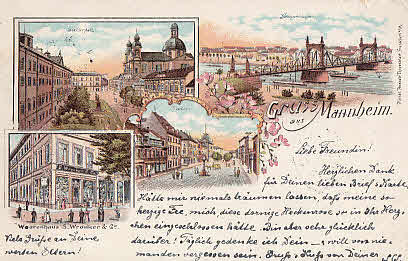 Gruss
aus
Mannheim.
Waarenhaus S. Wronker & Co.
Liebe Freundin!
Herzlichen Dank
für Deinen lieben Brief u. Karte
Hätte mir niemals träumen lassen, daß meine so
herzige Fee, mich diese dornige Heckenrose so in ihr Herz-
chen eingeschlossen hätte. Bin aber sehr glücklich
darüber! Täglich gedenke ich Dein – will von nie-
manden vergessen sein. Gruß u. Kuß von Deiner
Viele Grüße an Deine
werten Eltern!